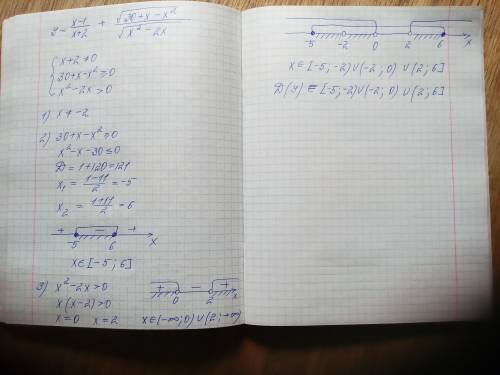 2 - (x-1)/(x+2) + √(30+x-x²)/√(x²-2x)
{ x+2≠0
30+x-x²≥0
x²-2x>0
1) x≠-2
2) 30+x-x²≥0
x²-x-30≤0
D=1+120=121
x₁ = (1-11)/2 = -5
x₂ = (1+11)/2 = 6
+ - +
-5 6 x
x∈[-5; 6]
3) x²-2x>0
x(x-2)>0
x=0 x=2
+ - +
0 2 x
x∈(-∞;0)∪(2;+∞)
-5 -2 0 2 6 x
x∈[-5;-2)∪(-2;0)∪(2;6]
D(y)∈[-5;-2)∪(-2;0)∪(2;6]